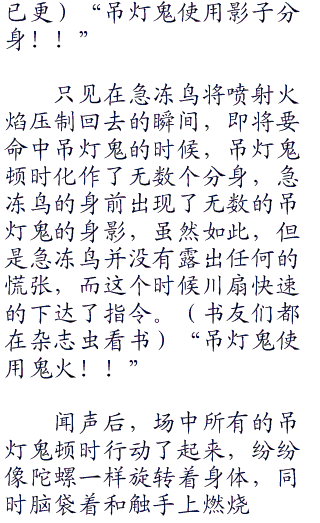 已更）“吊灯鬼使用影子分
身！！”
只见在急冻鸟将喷射火
焰压制回去的瞬间，即将要
命中吊灯鬼的时候，吊灯鬼
顿时化作了无数个分身，急
冻鸟的身前出现了无数的吊
灯鬼的身影，虽然如此，但
是急冻鸟并没有露出任何的
慌张，而这个时候川扇快速
的下达了指令。（书友们都
在杂志虫看书）“吊灯鬼使
用鬼火！！”
闻声后，场中所有的吊
灯鬼顿时行动了起来，纷纷
像陀螺一样旋转着身体，同
时脑袋着和触手上燃烧